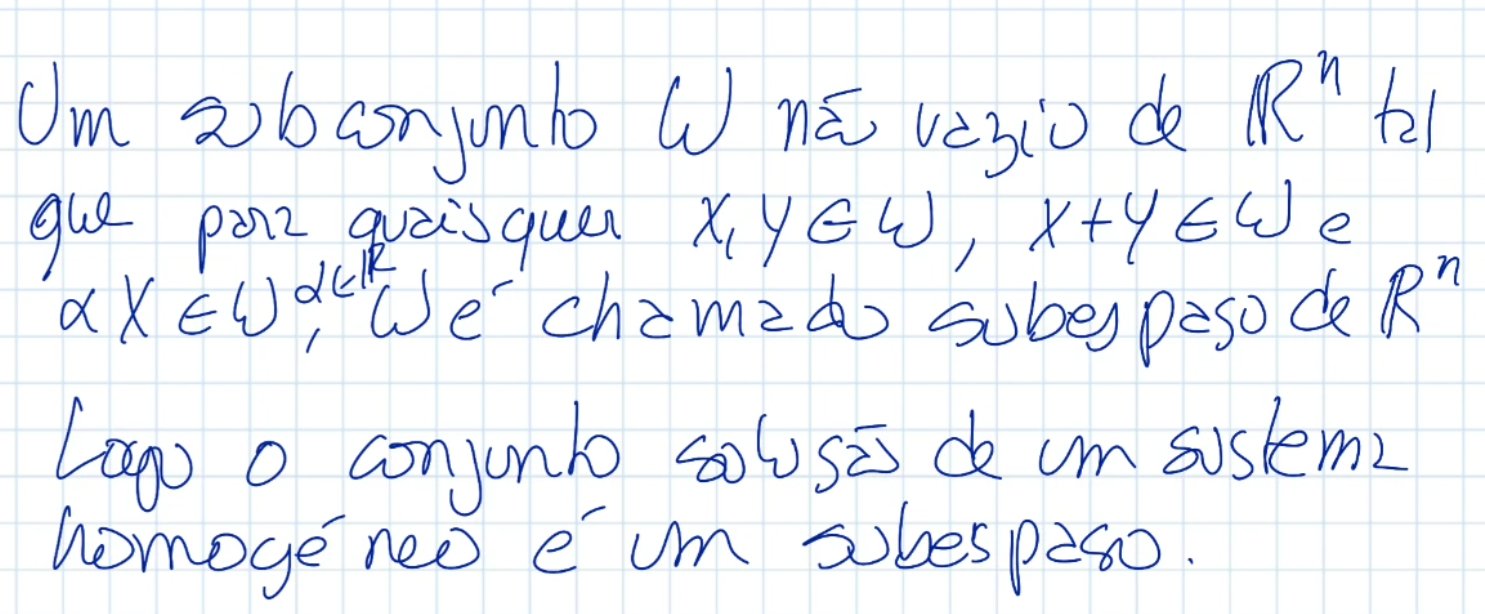 Um subconjunto W não vazio de ℝⁿ tal
que para quaisquer X, Y ∈ W, X+Y ∈ W e
αX ∈ W α∈ℝ, W é chamado subespaso de ℝⁿ
Logo o conjunto solusão de um sistema
homogéneo é um subespaso.